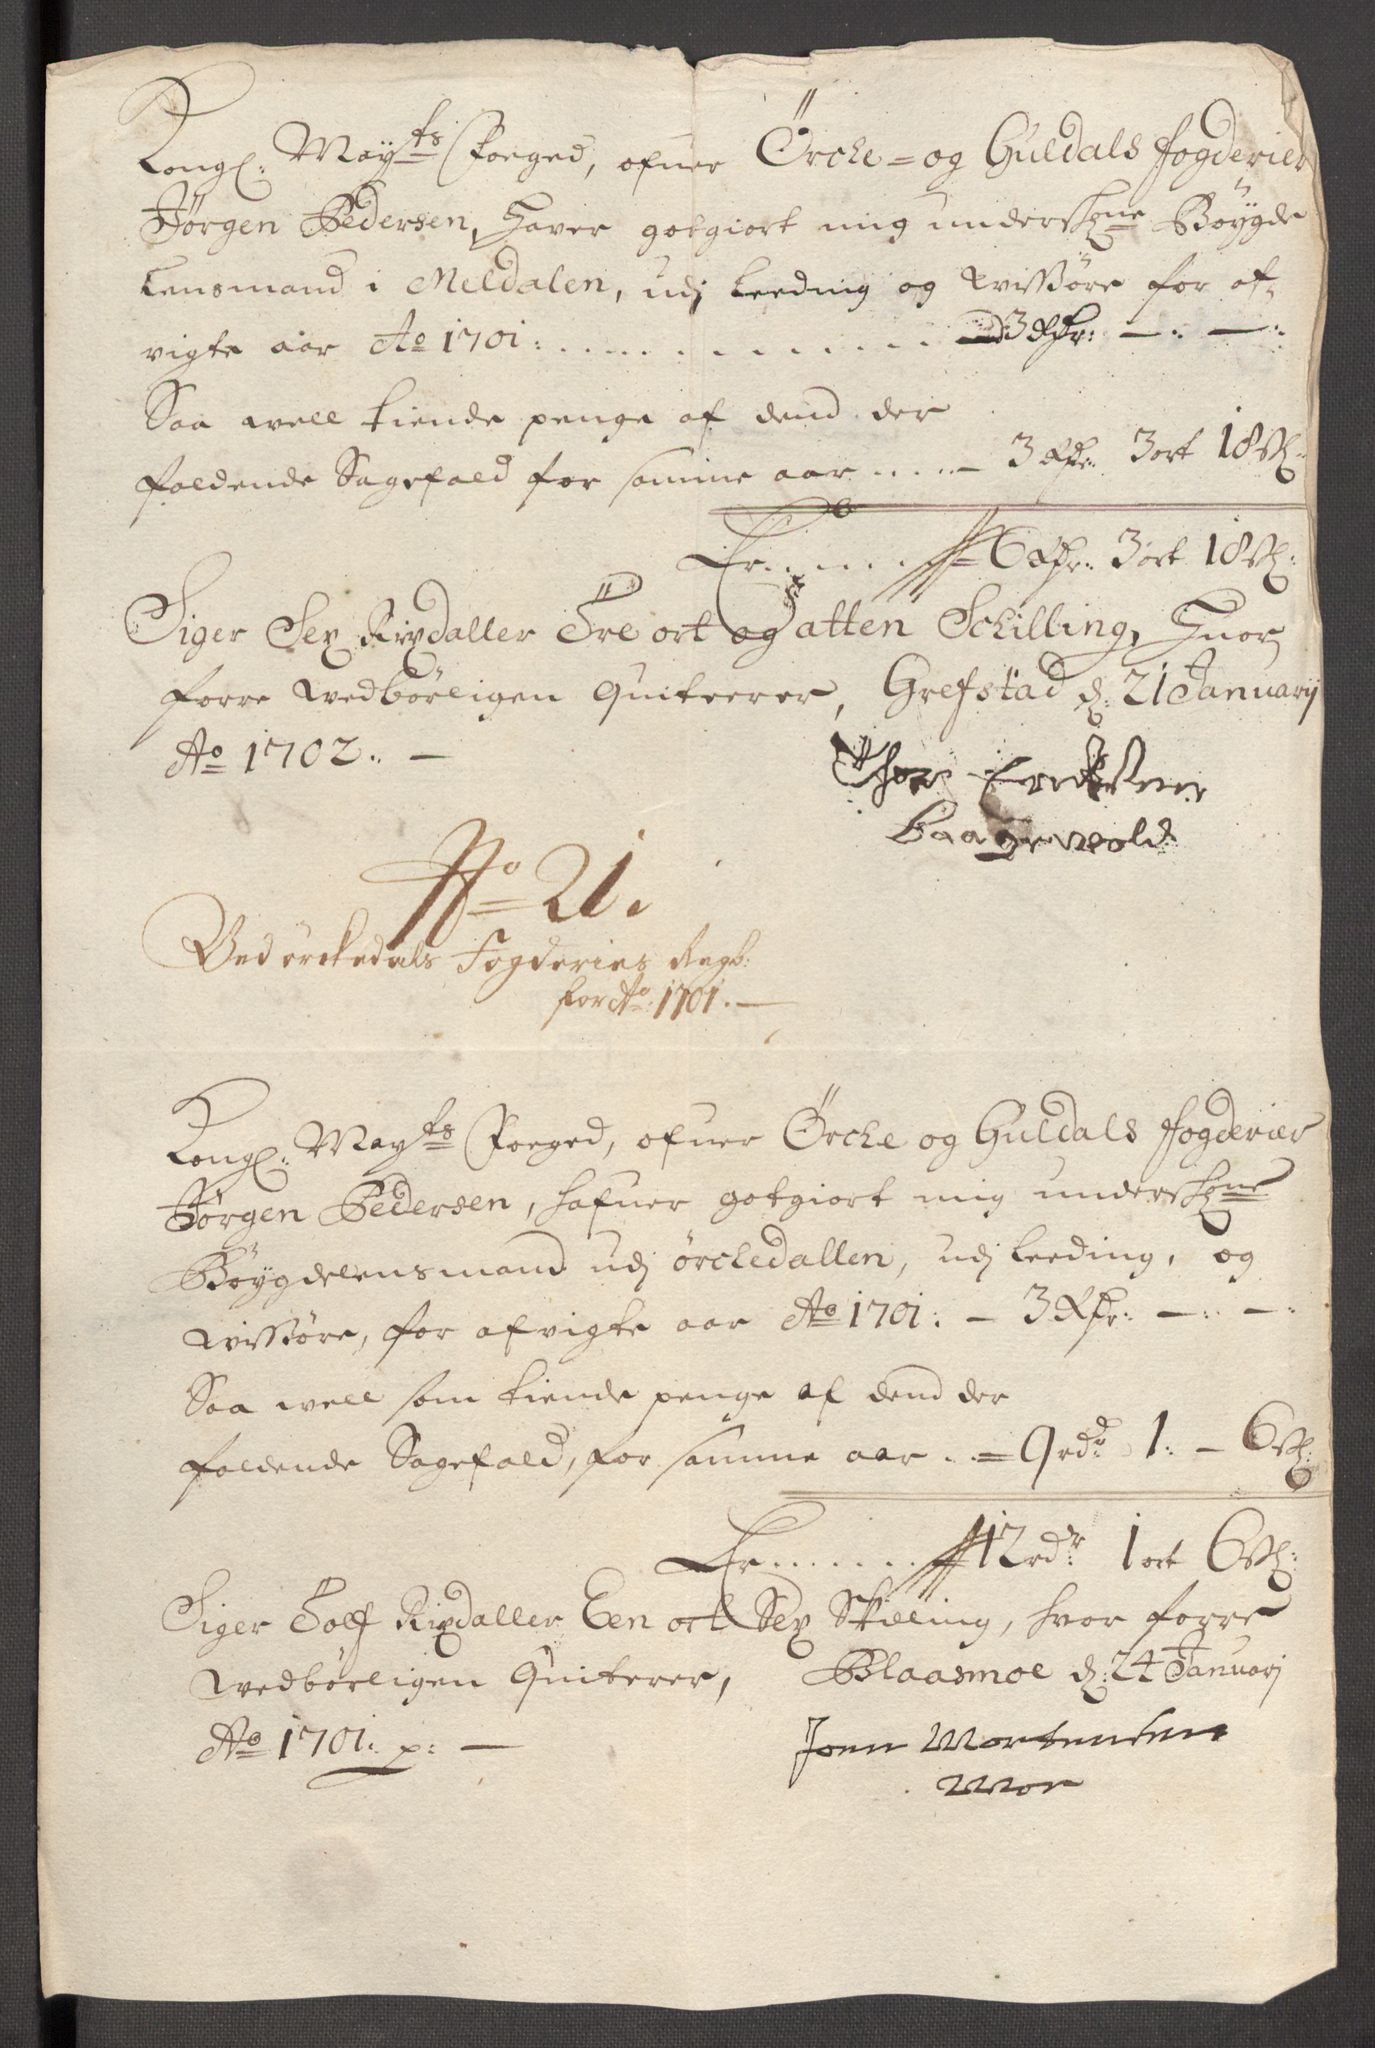 Kongl: May:ts Foeged, ofuer Örche= og Guldals fogderier
Jörgen Pedersen, Haver gotgiort mig undersk:ne Böygde
Lensmand i Meldalen, udj Leeding og Wissöre for af,
vigte aar Ao 1701: . . . . . . . . . . . . 3 Rdr: —: —:
Saa well tiende penge af dend der
faldende Sagefald for samme aar . . . . – 3 Rdr: 3 ort 18 sk:
Er. . . . . . 6 Rdr: 3 ort 18 sk:
Siger Sex Rixdaller Tre ort og atten Schilling, Huor
forre Wedbörligen Quiteerer, Grefstad d: 21 Januarij
Ao 1702: —
Thor Erichsen
Baagewold
No = 21.
Ved örckedals Fogderies Regb:
for Ao: 1701. —
Kongl: May:ts Foeged, ofuer Örche og Guldals fogderier
Jörgen Pedersen, hafuer gotgiort mig undersk:ne
Böygdelensmand udj örchedallen, udj Leeding, og
Wissöre, for afvigte aar Ao 1701: – 3 Rdr: —: —:
Saa well som tiende penge af dend der
faldende Sagefald, for samme aar . . = 9 rdr: 1: – 6 sk:
Er. . . . . . . 12 rdr: 1 ort 6 sk:
Siger Tolf Rixdaller Een ort Sex Skilling, hvor forre
Wedbörligen Quiterer, Blaasmoe d: 24 Januarj
Ao 1701: p: —
Joen Mortensen
Moe